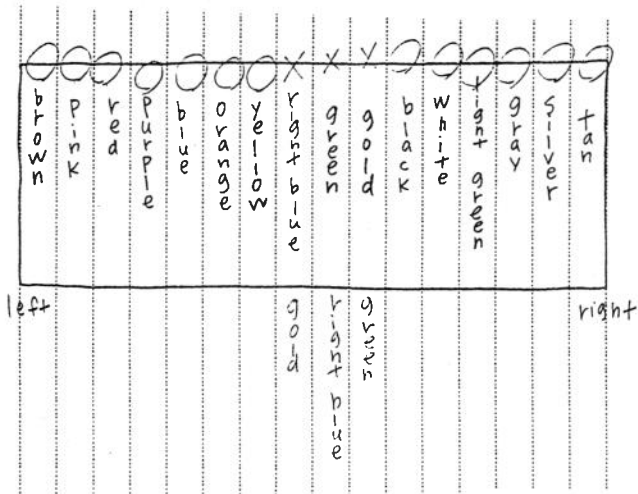 brown
pink
red
purple
blue
orange
yellow
right blue
green
gold
black
white
right green
gray
silver
tan
left
right
gold
right blue
green